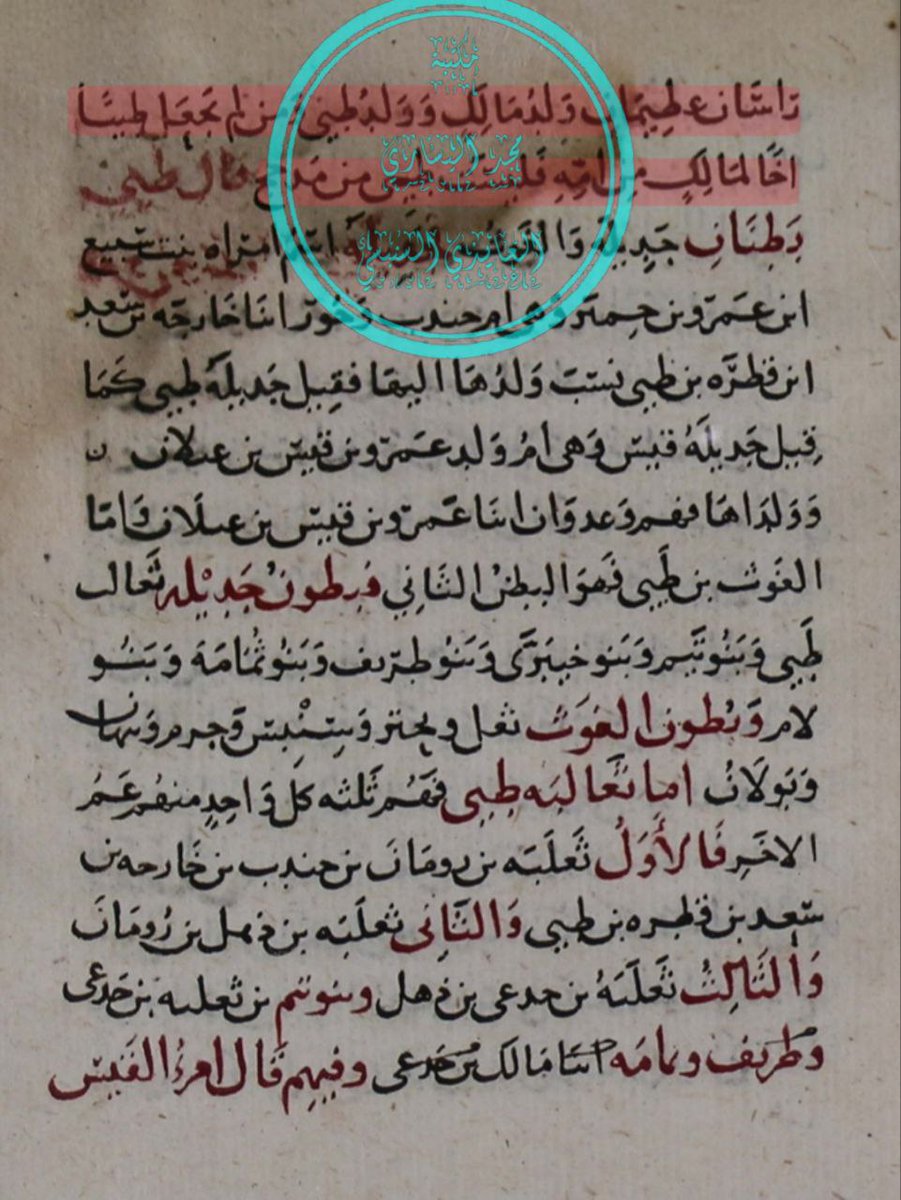 راسان عظيمان ولد مالك وولد طيى ومن لم يجعل طيئا
اخا لمالك من امه فليست طيى من مذحج قال طيى
بطنان جديلة اسم امراه بنت سبيع
ابن عمرو بن حمير وهى ام جندب وحور ابنا خارجه بن سعد
ابن فطره بن طيى نسب ولدها اليها فقيل جديلة طيى كما
قيل جديلة قيس وهى ام ولد عمرو بن قيس بن عيلان
وولداها فهم وعدوان ابنا عمرو بن قيس بن عيلان واما
الغوث بن طيى فهو البطن الثاني فبطون جديله ثعالب
طيى وبنو تيم وبنو خيبرى وبنو طريف وبنو ثمامة وبنو
لام وبطون الغوث ثعل وبحتر وسنبس وجرم ونبهان
وبولان اما ثعالبه طيى فهم ثلثه كل واحد منهم عم
الاخر فالأول ثعلبه بن رومان بن جندب بن خارجه بن
سعد بن فطره بن طيى والثانى ثعلبه بن ذهل بن رومان
والثالث ثعلبة بن جدعى بن ذهل وبنو تيم بن ثعلبه بن جدعى
وطريف وثمامه ابنا مالك بن جدعى وفيهم قال امرؤ القيس
مكتبة
محمد اليساري
العايذي السنبسي